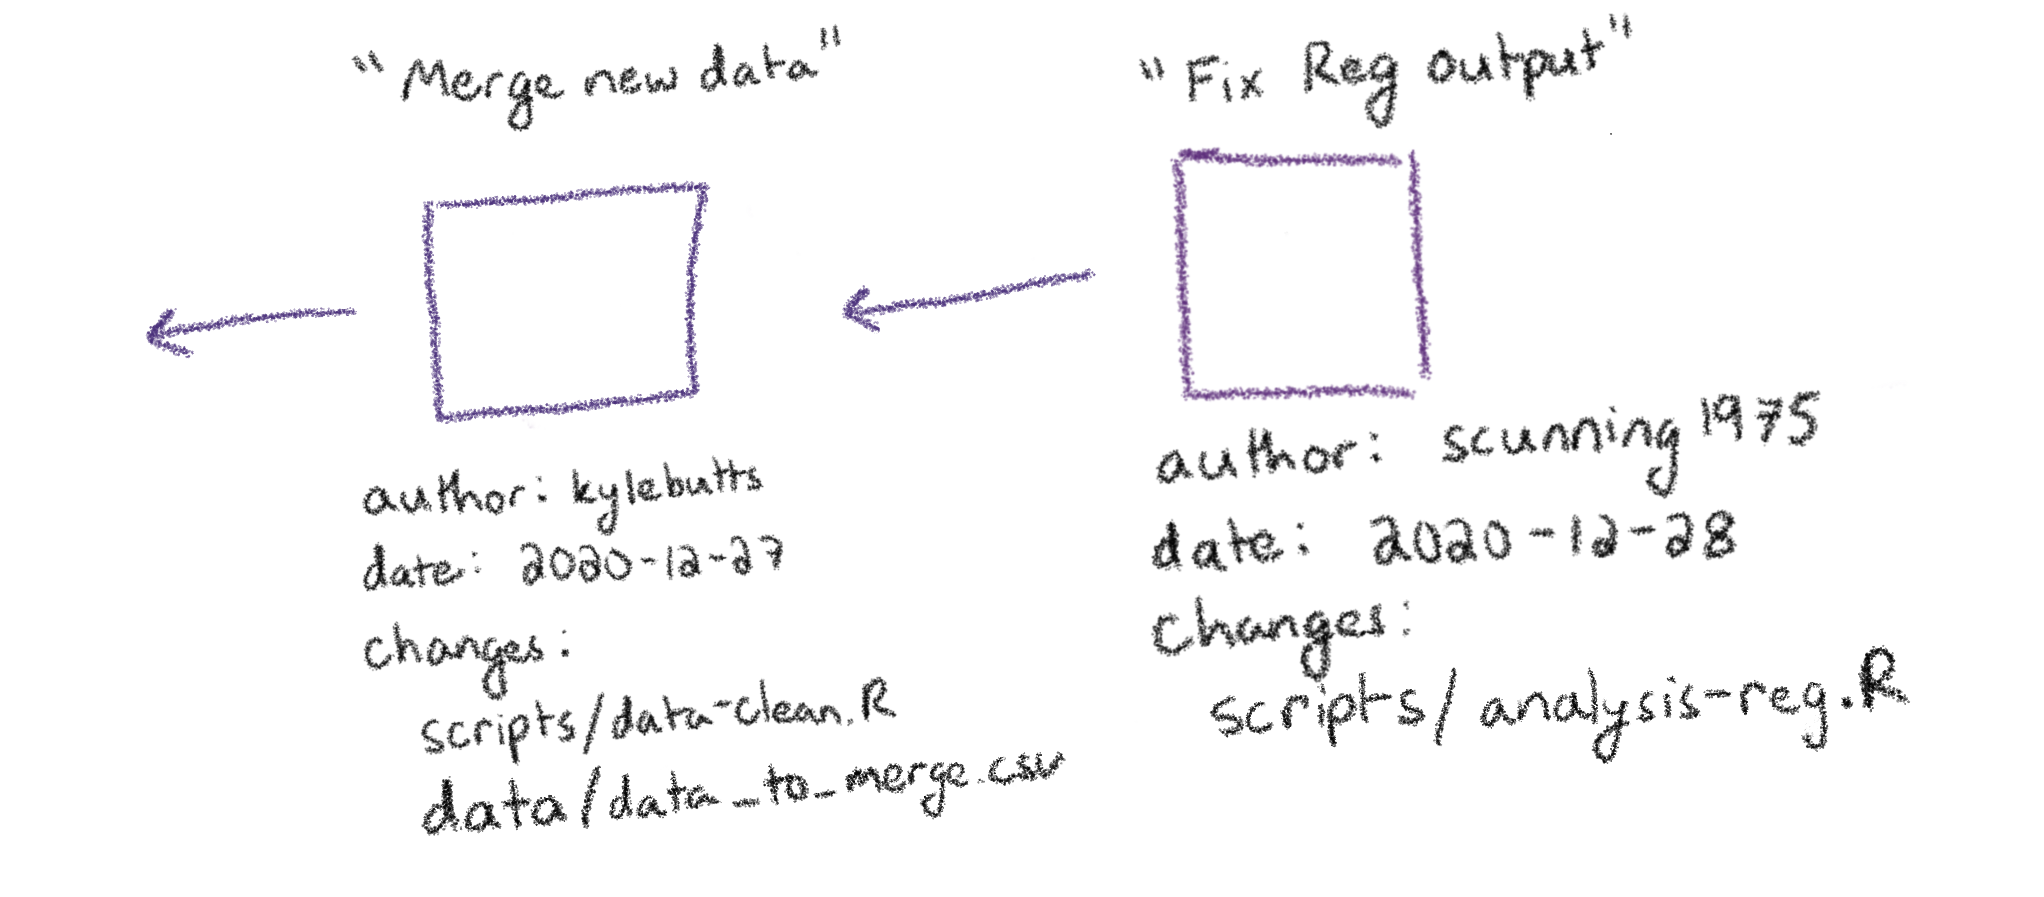 "Merge new data"
author: kylebutts
date: 2020-12-27
changes:
scripts/data-clean.R
data/data_to_merge.csv
"Fix Reg output"
author: scunning1975
date: 2020-12-28
changes:
scripts/analysis-reg.R